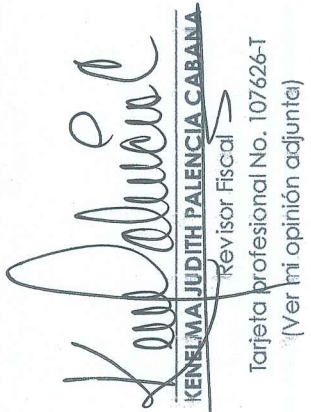 KENELMA JUDITH PALENCIA CABANA
Revisor Fiscal
Tarjeta profesional No. 107626-T
(Ver mi opinión adjunta)